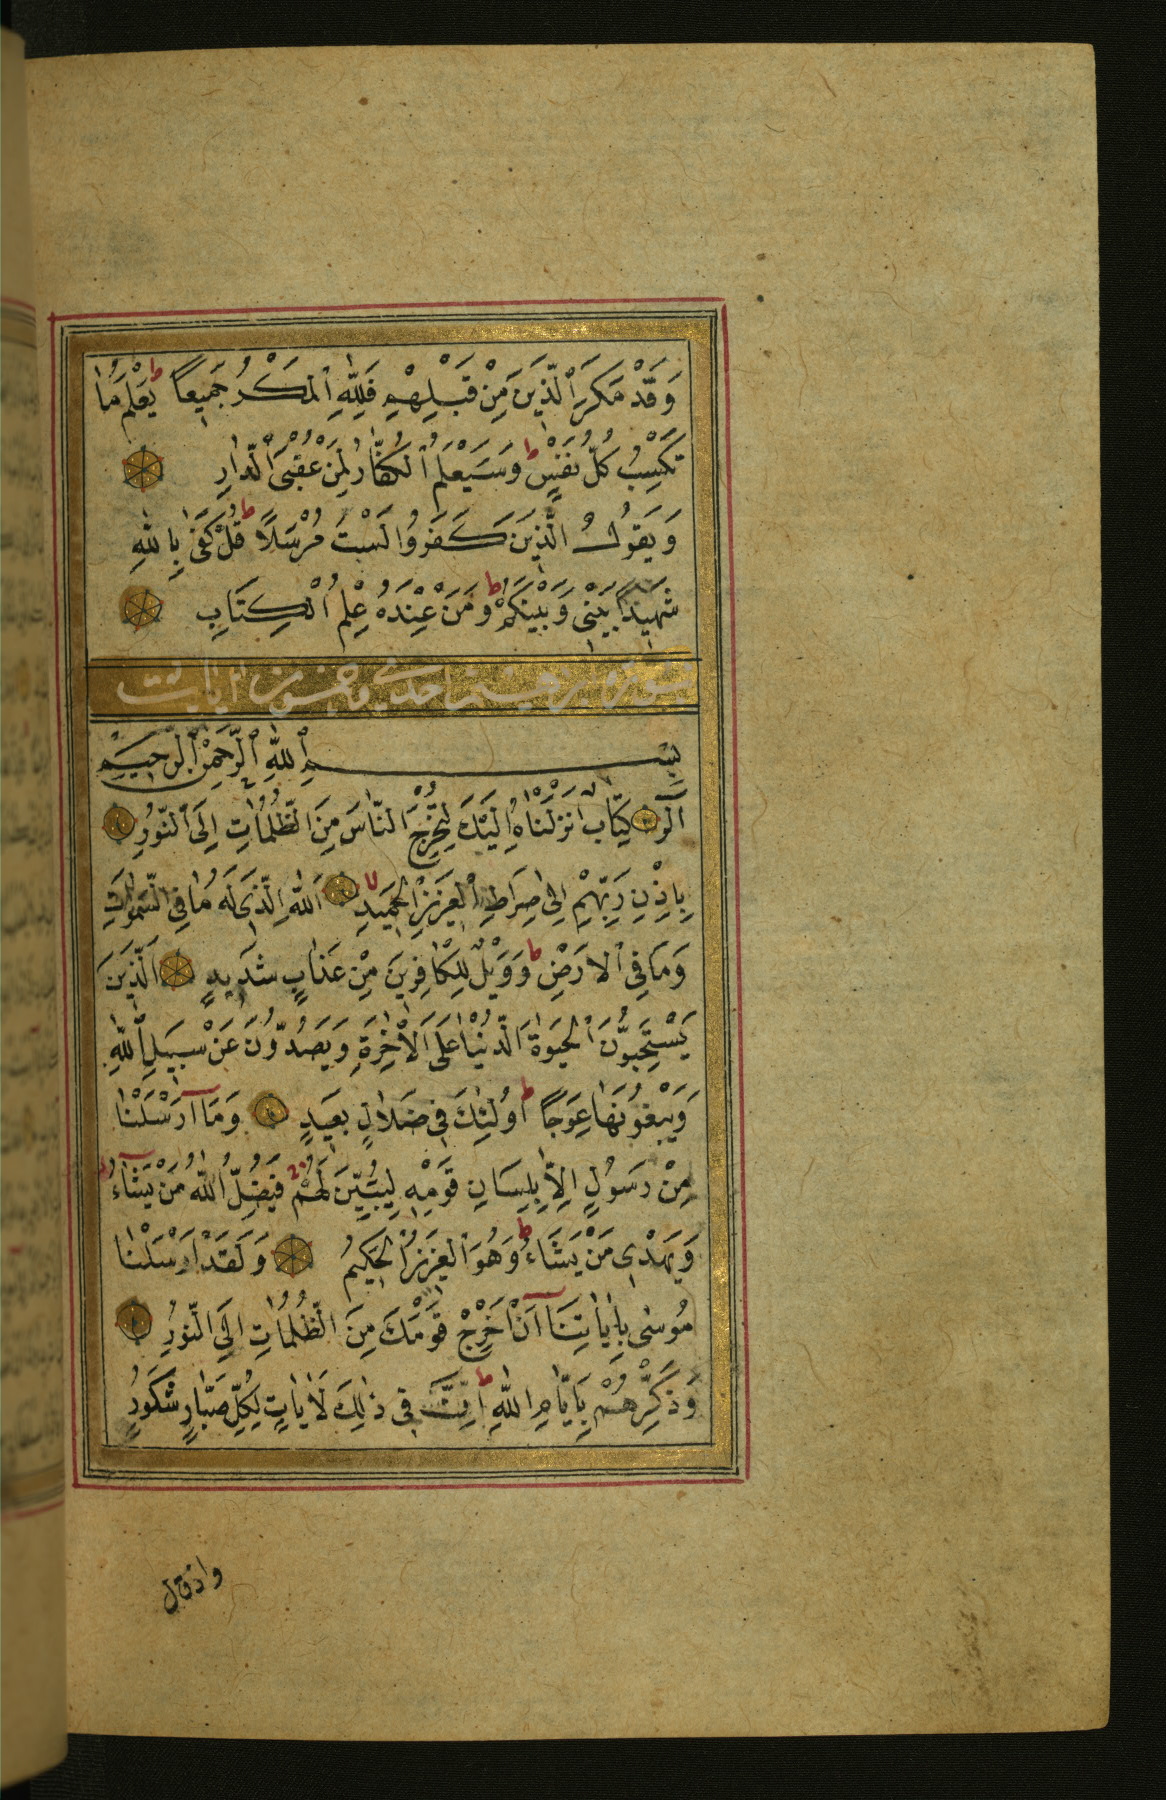 وَقَدْ مَكَرَ ٱلَّذِينَ مِنْ قَبْلِهِمْ فَلِلّٰهِ ٱلْمَكْرُ جَمِيعًا ط يَعْلَمُ مَا
تَكْسِبُ كُلُّ نَفْسٍ ط وَسَيَعْلَمُ ٱلْكُفَّارُ لِمَنْ عُقْبَى ٱلدَّارِ
وَيَقُولُ الَّذِينَ كَفَرُوا لَسْتَ مُرْسَلًا ط قُلْ كَفٰى بِاللّٰهِ
شَهِيدًا بَيْنِي وَبَيْنَكُمْ ط وَمَنْ عِنْدَهُ عِلْمُ الْكِتَابِ
سورة ابرهيم احدى وخمسون ايات
بِسْمِ ٱللّٰهِ ٱلرَّحْمٰنِ ٱلرَّحِيمِ
الٓرٰ كِتَابٌ أَنْزَلْنَاهُ إِلَيْكَ لِتُخْرِجَ النَّاسَ مِنَ الظُّلُمَاتِ إِلَى ٱلنُّورِ
بِإِذْنِ رَبِّهِمْ إِلىٰ صِرَاطِ ٱلْعَزِيزِ الْحَمِيدِ لا اَللّٰهِ الَّذِي لَهُ مَا فِي السَّمٰوَاتِ
وَمَا فِي ٱلْاَرْضِ ط وَوَيْلٌ لِلْكَافِرِينَ مِنْ عَذَابٍ شَدِيدٍ اَلَّذِينَ
يَسْتَحِبُّونَ ٱلْحَيٰوةَ الدُّنْيَا عَلَى الْاٰخِرَةِ وَيَصُدُّونَ عَنْ سَبِيلِ ٱللّٰهِ
وَيَبْغُونَهَا عِوَجًا ط اُولٰئِكَ فِي ضَلَالٍ بَعِيدٍ وَمَآ اَرْسَلْنَا
مِنْ رَسُولٍ اِلَّا بِلِسَانِ قَوْمِهِ لِيُبَيِّنَ لَهُمْ ط فَيُضِلُّ اللّٰهُ مَنْ يَشَآءُ
وَيَهْدِي مَنْ يَشَاءُ ط وَهُوَ ٱلْعَزِيزُ الْحَكِيمُ وَلَقَدْ اَرْسَلْنَا
مُوسٰى بِاٰيَاتِنَآ اَنْ اَخْرِجْ قَوْمَكَ مِنَ الظُّلُمَاتِ اِلَى النُّورِ
وَذَكِّرْهُمْ بِاَيَّامِ اللّٰهِ ط اِنَّ فِي ذٰلِكَ لَاٰيَاتٍ لِكُلِّ صَبَّارٍ شَكُورٍ
واذ قال